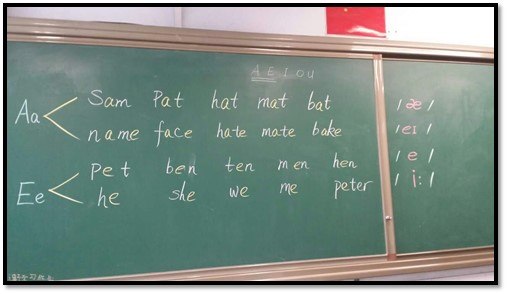 A E I O U
Aa
Sam Pat hat mat bat
name face hate mate bake
Ee
pet ben ten men hen
he she we me peter
/ æ /
/ eɪ /
/ e /
/ i: /